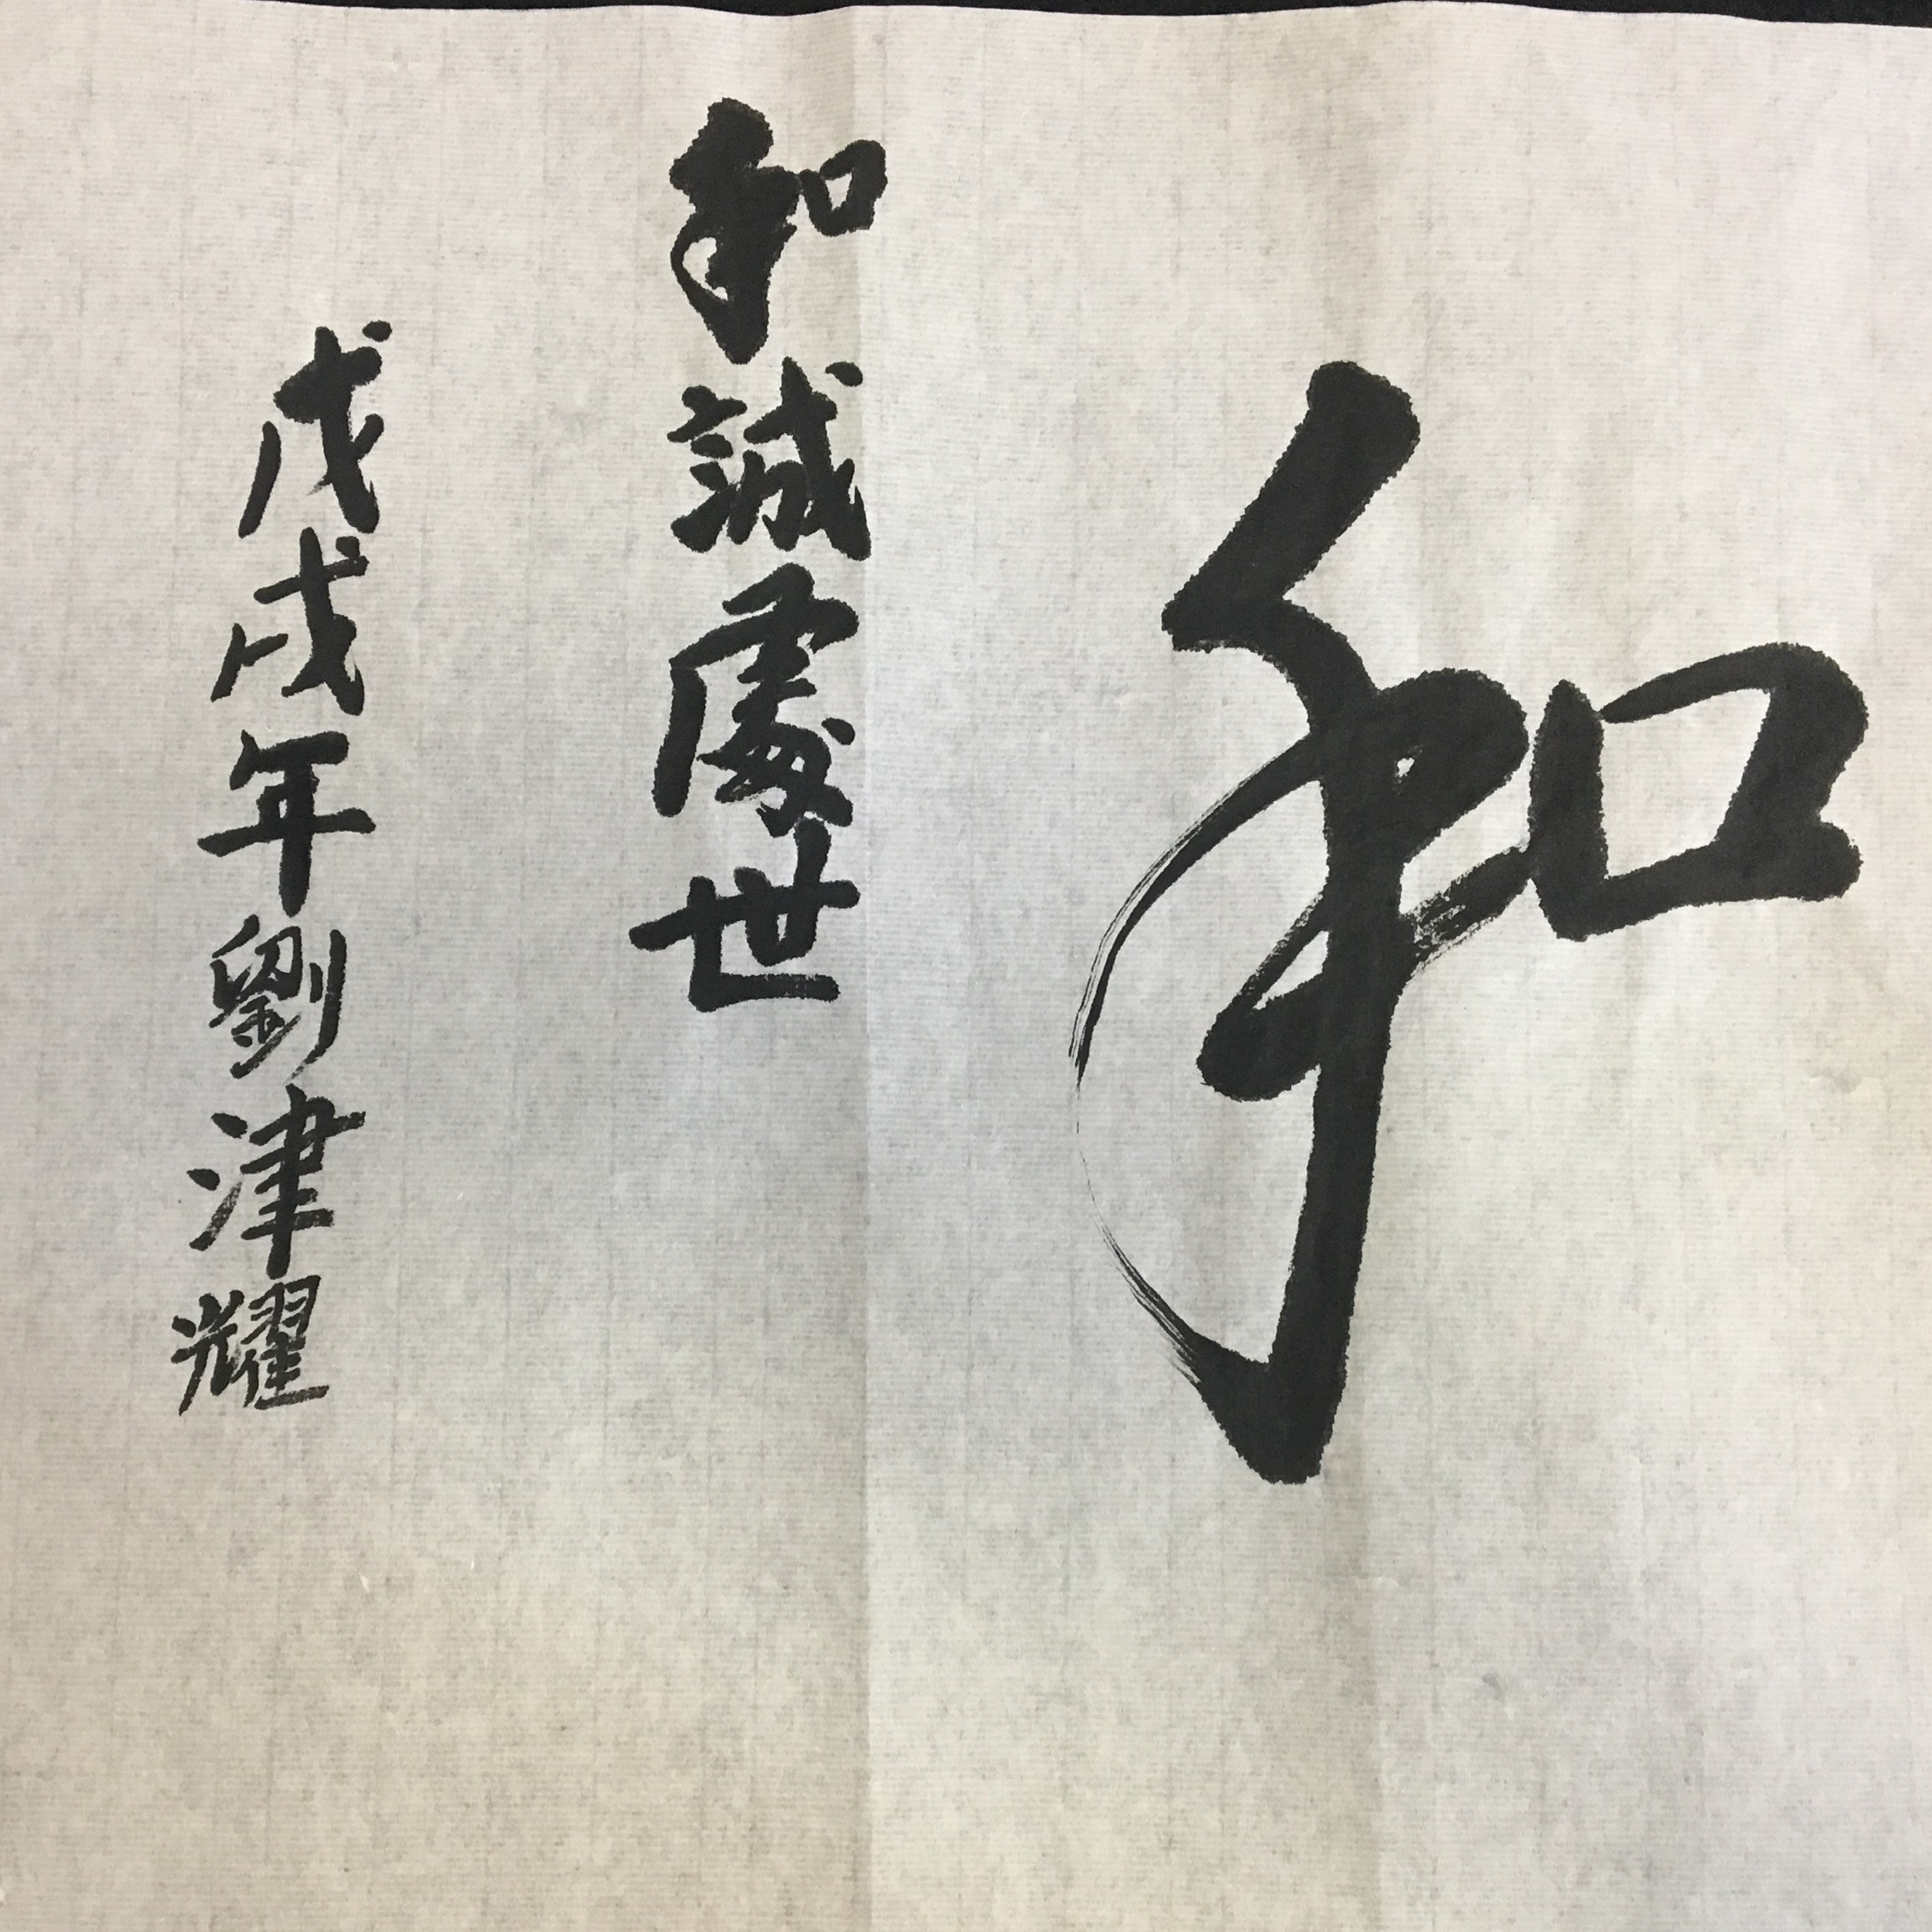 和
和誠處世
戊戌年劉津耀